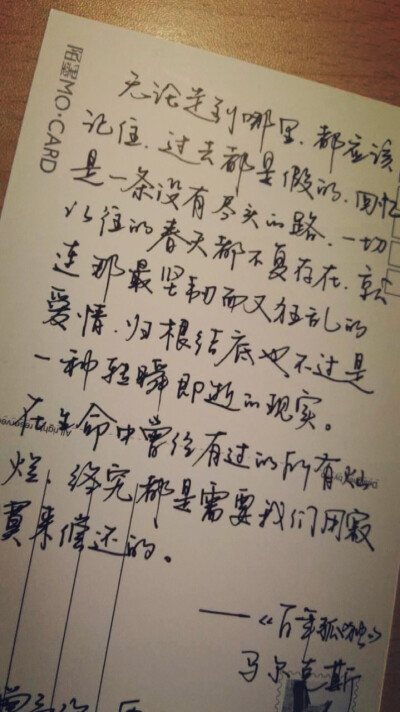 陌墨MO·CARD
无论走到哪里，都应该
记住，过去都是假的，回忆
是一条没有尽头的路，一切
以往的春天都不复存在，就
连那最坚韧而又狂乱的
爱情，归根结底也不过是
一种轻瞬即逝的现实。
在生命中曾经有过的所有灿
烂，终究都是需要我们用寂
寞来偿还的。
——《百年孤独》
马尔克斯